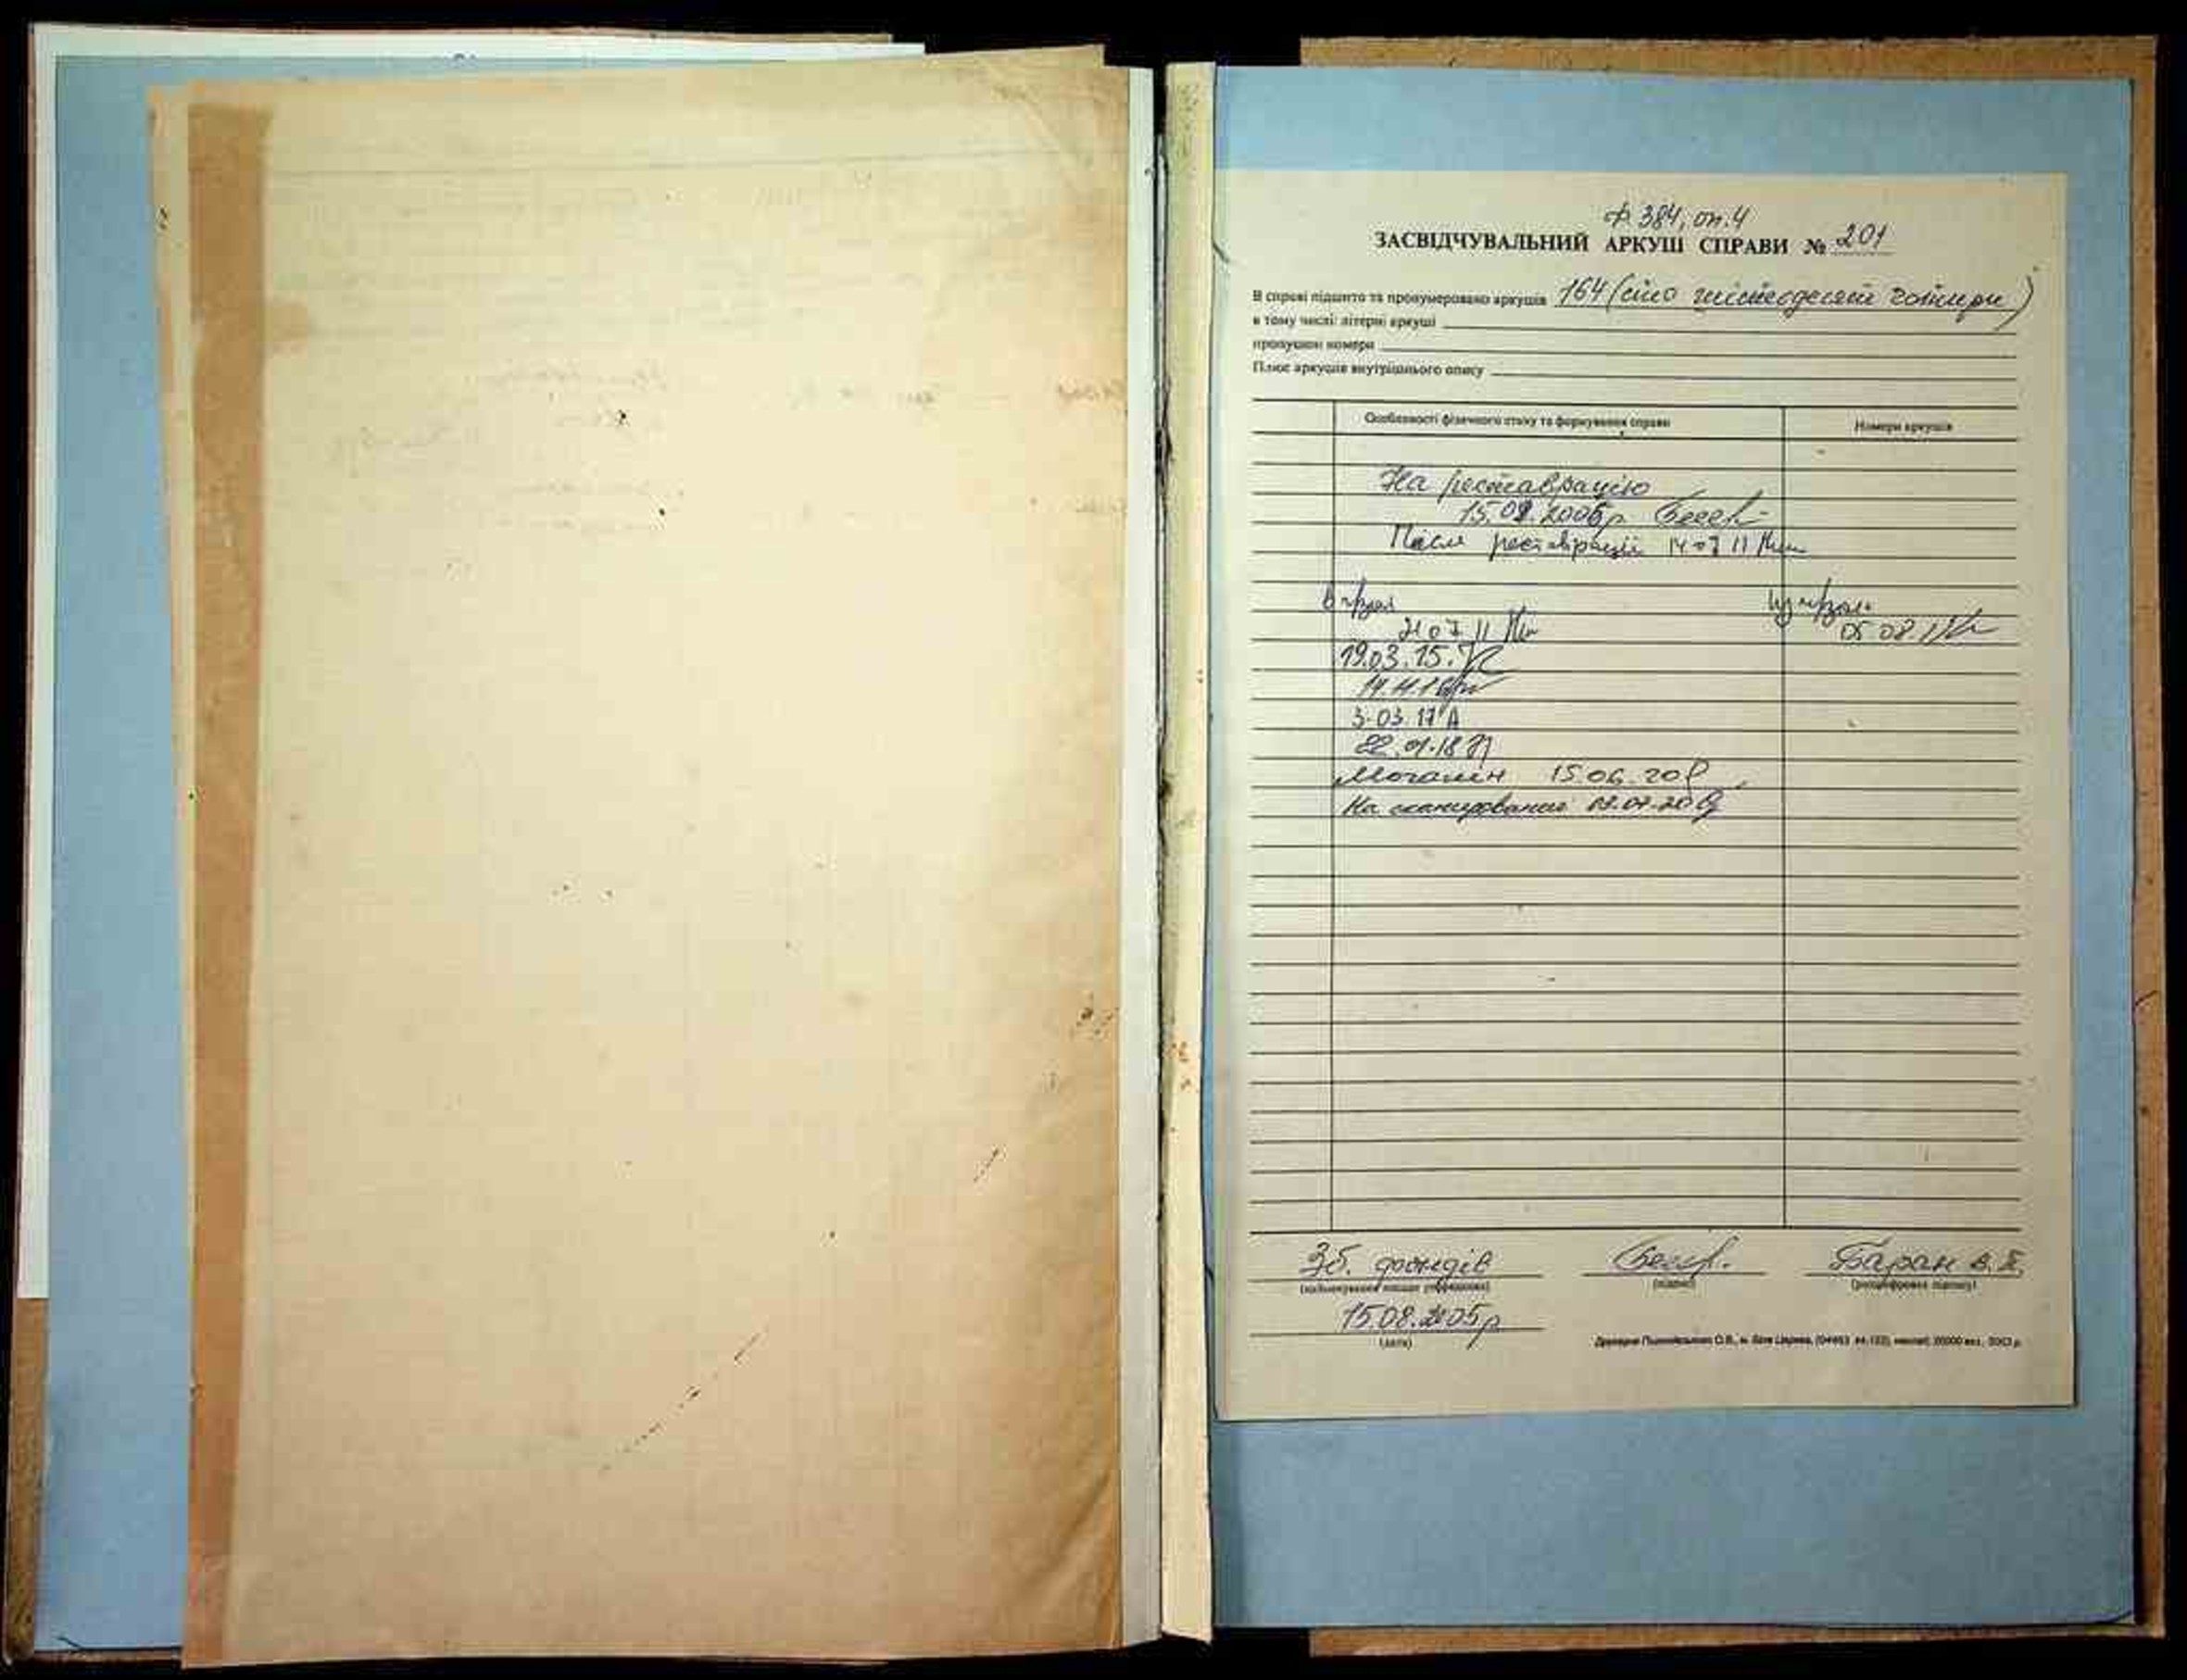 ф. 384, оп. 4
ЗАСВІДЧУВАЛЬНИЙ АРКУШ СПРАВИ № 201
В справі підшито та пронумеровано аркушів 164 (сто шістдесят чотири)
в тому числі: літерні аркуші
пропущені номери
Плюс аркушів внутрішнього опису
Особливості фізичного стану та формування справи
Номери аркушів
На реставрацію
15.08.2005р.
Після реставрації 14 07 11
21 07 11
05 08 11
19.03.15.
14.11.16
3.03.17
22.01.18
15.06.20
На сканирование 03.07.20
Зб. фондів
Баран В. П.
(найменування посади працівника)
(підпис)
(розшифровка підпису)
15.08.2005р
(дата)